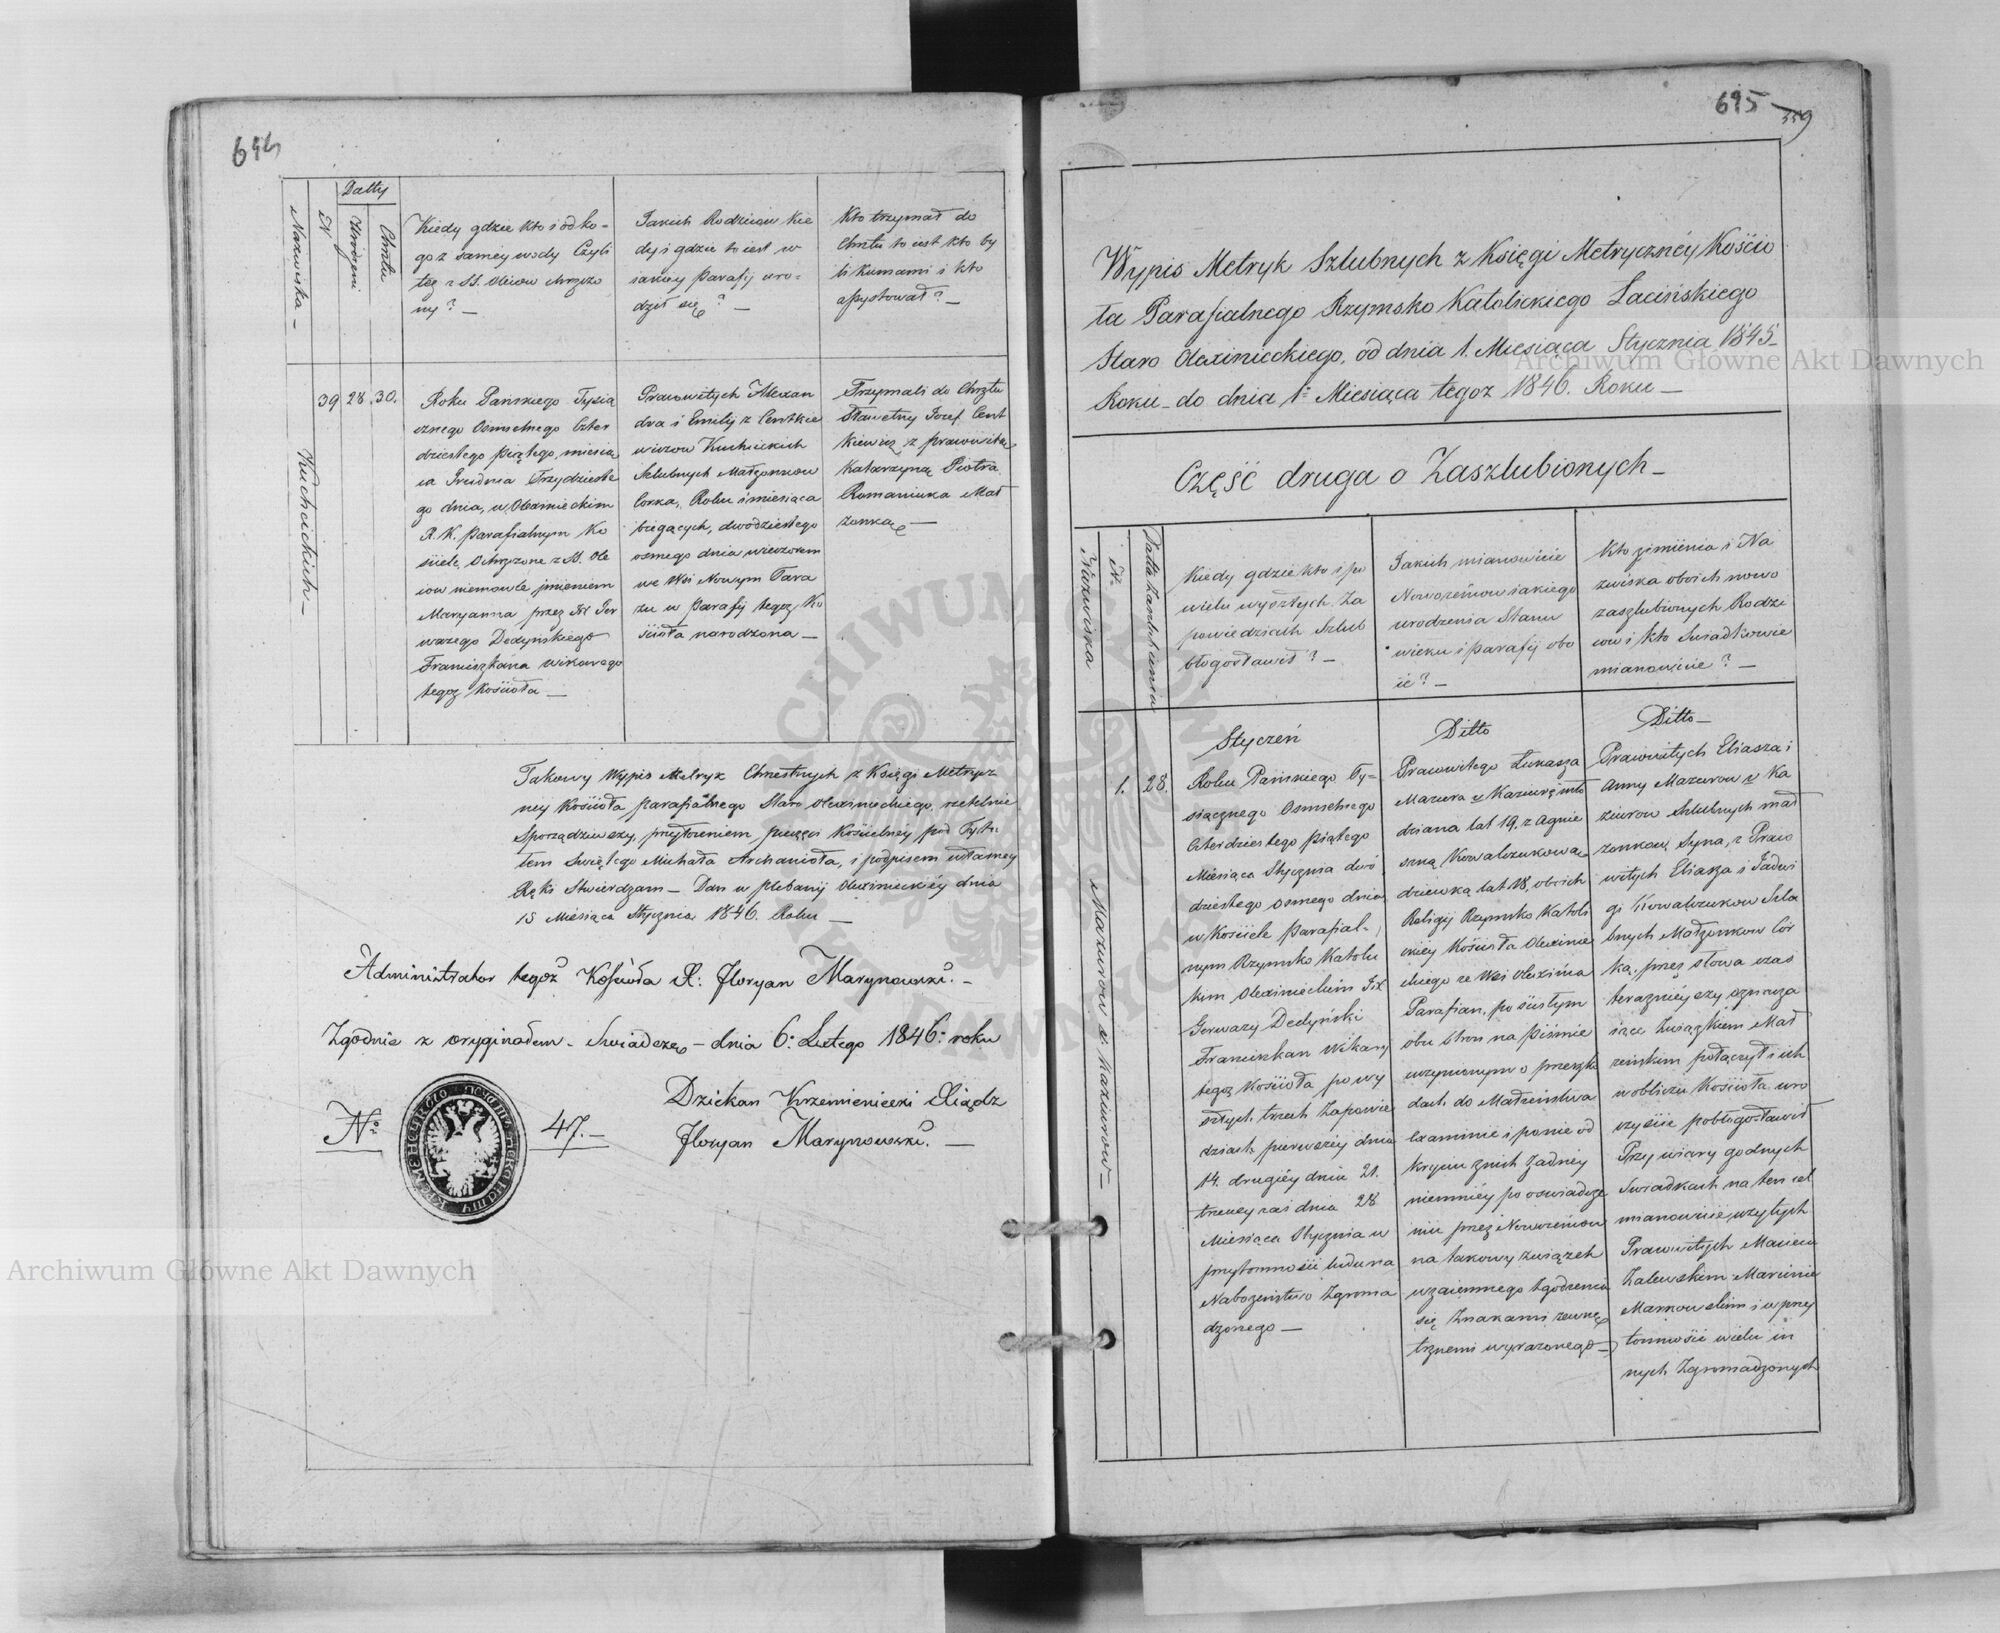 694
Datty
Nazwiska –
N
Urodzeni
Chrztu
Kiedy gdzie kto i od ko-
go z samey wody Czyli
też z SS. Oleiow chrzczo
ny? –
Jakich Rodziców Kie
dy i gdzie to iest w
iakiey Parafij uro-
dził się? –
Kto trzymał do
Chrztu to iest kto by
li Kumami i kto
assystował? –
Kuchcickich –
39
28.
30.
Roku Pańskiego Tysią
cznego Osmsetnego Czter
dziestego piątego, miesią
ca Grudnia Trzydzieste
go dnia, w Olexinieckim
R. K. Parafialnym Ko
ściele, Ochrzczone z SS. Ole
iow niemowle imieniem
Maryanna przez JX. Ger
wazego Dedyńskiego
Franciszkana wikarego
tegoż Kościoła –
Prawowitych Alexan
dra i Emilij z Centkie
wiczow Kuchcickich
Szlubnych Małżonkow
Corka, Roku i miesiąca
biegących, dwódziestego
osmego dnia wieczorem
we Wsi Nowym Tara
żu w parafij tegoż Ko
ścioła narodzona –
Trzymali do Chrztu
Sławetny Jozef Cent
kiewicz z prawowitą
Katarzyną Piotra
Romaniuka Mał
żonką –
Takowy Wypis Metryk Chrzestnych z Księgi Metrycz
ney Kościoła parafialnego Staro Olexinieckiego, rzetelnie
Sporządziwszy, przyłożeniem pieczęci Kościelney pod Tytu
łem Swiętego Michała Archanioła, i podpisem własney
Ręki Stwierdzam – Dan w plebanij Olexinieckiéy dnia
15 Miesiąca Stycznia 1846. Roku –
Administrator tegoż Kościoła X: Floryan Marynowski. –
Zgodnie z oryginałem – Swiadczę – dnia 6: Lutego 1846: roku
Dziekan Krzemieniecki Xiądz
Floryan Marynowski. –
No 47. –
695
359
Wypis Metryk Szlubnych z Księgi Metrycznéy Kościo
ła Parafialnego Rzymsko Katolickiego Łacińskiego
Staro Olexinieckiego, od dnia 1. Miesiąca Stycznia 1845
Roku – do dnia 1o Miesiąca tegoż 1846. Roku –
Część druga o Zaszlubionych –
Nazwiska
No
Datta Zaszlubienia
Kiedy gdzie kto i po
wielu wyszłych Za
powiedziach Szlub
błogosławił? –
Jakich mianowicie
Nowożeńcow iakiego
urodzenia Stanu
wieku i parafij obo
ie? –
Kto z imienia i Na
zwiska oboich nowo
zaszlubionych Rodzi
cow i kto Swiadkowie
mianowicie? –
Mazurow v. Kaziurow –
1.
28.
Styczeń
Roku Pańskiego Ty-
siącznego Osmsetnego
Czterdziestego piątego
Miesiąca Stycznia dwó
dziestego osmego dnia
w Kościele parafial-
nym Rzymsko Katolic
kim Olexinieckim JX
Gerwazy Dedyński
Franciszkan Wikary
tegoż Kościoła po wy
szłych trzech Zapowie
dziach pierwszéy dnia
14. drugiéy dnia 21.
trzeciey zaś dnia 28
Miesiąca Stycznia w
przytomności ludu na
Nabożeństwo Zgroma
dzonego –
Ditto
Prawowitego Łukasza
Mazura v Kaziurę mło
dziana lat 19, z Agnie
szką Kowalczukową
dziewką lat 18, oboich
Religij Rzymsko Katoli
ckiéy Kościoła Olexinie
ckiego ze Wsi Olexińca
Parafian, po ścisłym
obu stron na piśmie
uczynionym o przeszko
dach do Małżeństwa
Examinie i po nie od
kryciu z nich żadnéy
niemniéy po oswiadcze
niu przez Nowożeńcow
na takowy związek
wzaiemnego Zgodzenia
się, Znakami zewnę
trznemi wyrażonego –
Ditto –
Prawowitych Eliasza i
Anny Mazurow v Ka
ziurow Szlubnych mał
żonkow, Syna, z Prawo
witych Eliasza i Jadwi
gi Kowalczukow Szlu
bnych Małżonkow Cór
ką, przez słowa czas
teraznieyszy oznacza
iące Związkiem Mał
żeńskim połączył i ich
w obliczu Kościoła uro
czyście pobłogosławił
Przy wiary godnych
Swiadkach na ten cel
mianowicie użytych
Prawowitych Macieiu
Zalewskim Marcinie
Markowskim i w przy
tomności wielu in
nych Zgromadzonych
Archiwum Główne Akt Dawnych
Archiwum Główne Akt Dawnych